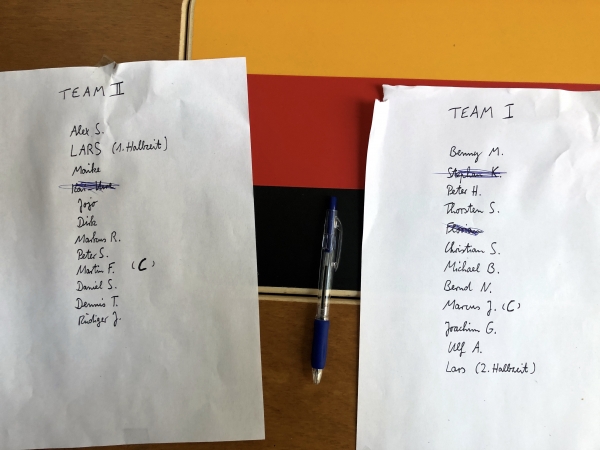 TEAM II
Alex S.
LARS (1. Halbzeit)
Maike
Jojo
Dirk
Markus R.
Peter S.
Martin F. (C)
Daniel S.
Dennis T.
Rüdiger J.
TEAM I
Benny M.
Stephan K.
Peter H.
Thorsten S.
Christian S.
Michael B.
Bernd N.
Marcus J. (C)
Joachim G.
Ulf A.
Lars (2. Halbzeit)